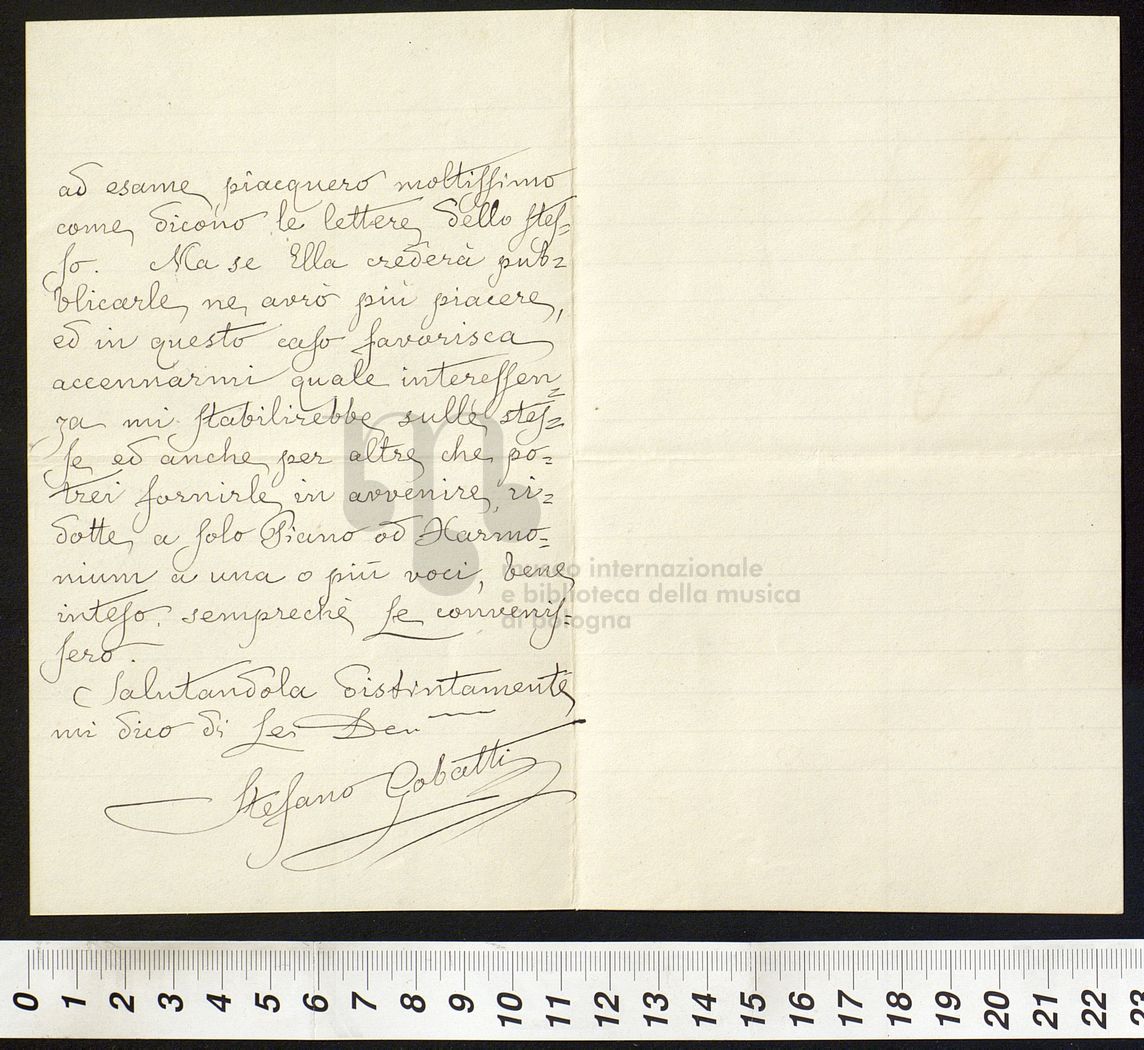 ad esame, piacquero moltissimo
come dicono le lettere dello stes=
so. Ma se Ella crederà pub=
blicarle ne avrò più piacere,
ed in questo caso favorisca
accennarmi quale interessen=
za mi stabilirebbe sulle stes=
se ed anche per altre che po=
trei fornirle in avvenire, ri=
dotte a solo Piano od Harmo=
nium a una o più voci, bene
inteso, sempreché Le convenis=
sero.
Salutandola distintamente
mi dico di Lei Dev
Stefano Gobatti
museo internazionale
e biblioteca della musica
di bologna
0 1 2 3 4 5 6 7 8 9 10 11 12 13 14 15 16 17 18 19 20 21 22 23